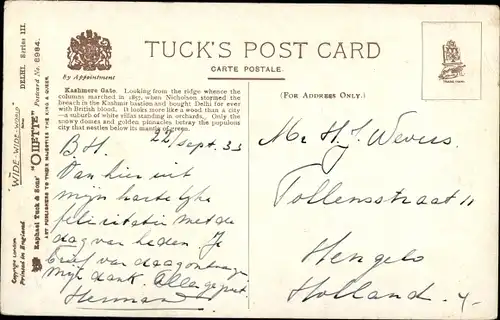 TUCK'S POST CARD
CARTE POSTALE.
By Appointment
(FOR ADDRESS ONLY.)
Kashmere Gate. Looking from the ridge whence the
columns marched in 1857, when Nicholson stormed the
breach in the Kashmir bastion and bought Delhi for ever
with British blood. It looks more like a wood than a city
—a suburb of white villas standing in orchards. Only the
snowy domes and golden pinnacles betray the populous
city that nestles below its mantle of green.
"WIDE-WIDE-WORLD" DELHI. Series III.
Raphael Tuck & Sons' "OILETTE" Postcard No. 8984.
ART PUBLISHERS TO THEIR MAJESTIES THE KING & QUEEN
Copyright London
Printed in England
TRADE MARK
22/Sept. 33
B.H.
Van hier uit
mijn hartelijke
felicitatie met de
dag van heden. Je
brief van daag ontvangen
mijn dank. Allen gegroet.
Herman
Mr H. J. Wevers.
Tollensstraat 11
Hengelo
Holland